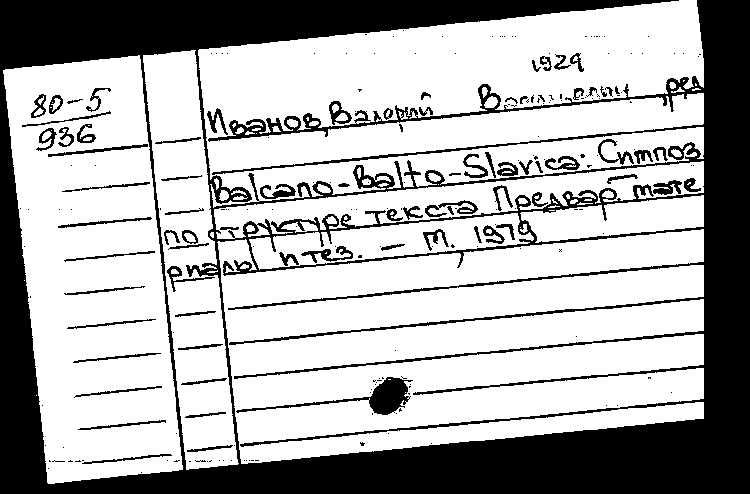 1924
80-5
936
Иванов, Валерий В , ред
Balcano-Balto-Slavica: Симпоз
по структуре текста. Предвар. мате
риалы и тез. — М., 1979